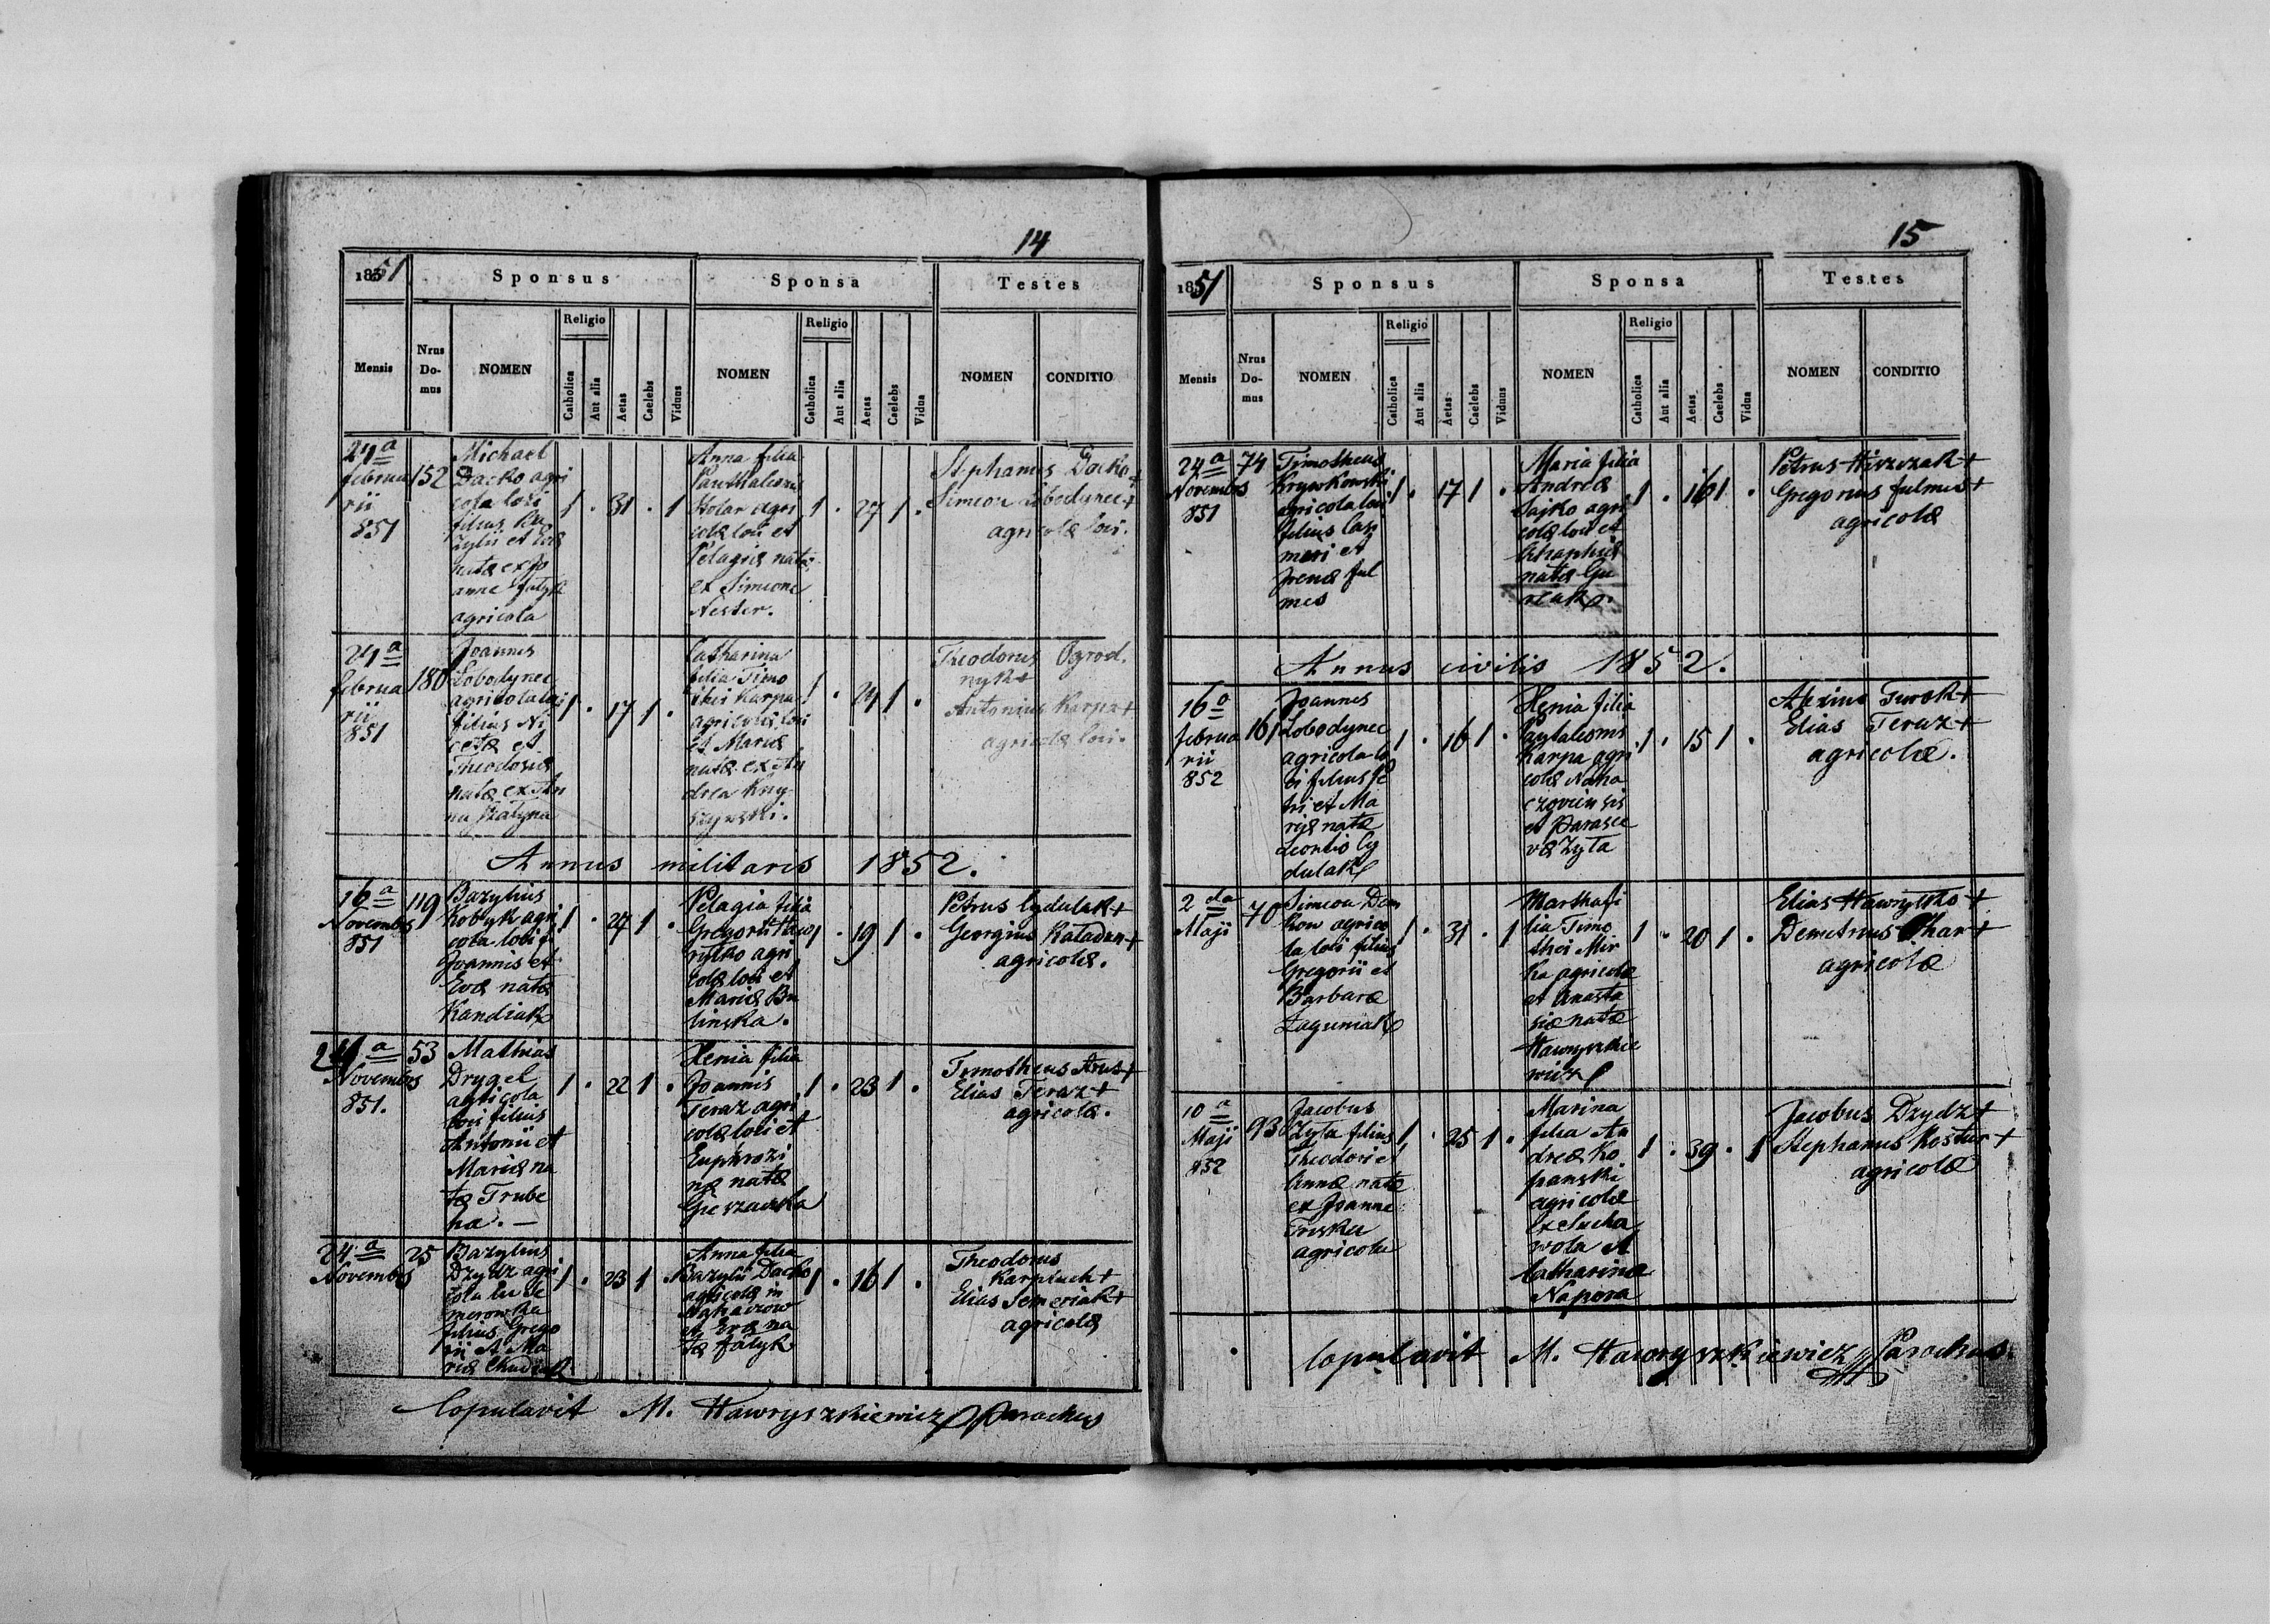 14
1851
Sponsus
Sponsa
Testes
Mensis
Nrus Do-mus
NOMEN
Religio
Catholica
Aut alia
Aetas
Caelebs
Viduus
NOMEN
Religio
Catholica
Aut alia
Aetas
Caelebs
Vidua
NOMEN
CONDITIO
24a
februa
rii
851
152
Michael
Dacko agri
cola loci
filius Ba
zylii et Evæ
natæ ex Jo
anne fatyk
agricola
1 . 31 . 1
Anna filia
Pantaleonis
Stolar agri
colæ loci et
Pelagiæ natæ
ex Simeone
Nester.
1 . 27 1 .
Stephanus Dacko +
Simeon Lobodynec +
agricolæ loci.
24a
februa
rii
851
180
Joannes
Lobodynec
agricola loci
filius Ni
cetæ et
Theodosiæ
natæ ex An
na
1 . 17 1 .
Catharina
filia Timo
thei Karpa
agricolæ loci
et Mariæ
natæ ex An
drea Kny
szynski.
1 . 24 1 .
Theodorus Ogrod.
nyk +
Antonius Karpa +
agricolæ loci.
Annus militaris 1852.
16a
Novembris
851
119
Bazylius
Kobyk agri
cola loci f.
Joannis et
Evæ natæ
Kandiak
1 . 27 1 .
Pelagia filia
Gregorii Haw
rytko agri
colæ loci et
Mariæ Bu
linska.
1 . 19 1 .
Petrus Cydulak +
Georgius Kaladun +
agricolæ.
24a
Novembris
851.
53
Mathias
Drygel
agricola
loci filius
Antonii et
Mariæ na
tæ Trube
na. —
1 . 22 1 .
Xenia filia
Joannis
Teraz agri
colæ loci et
Euphrozi
næ natæ
Gieszaczka
1 . 23 1 .
Timotheus Arus +
Elias Teraz +
agricolæ.
24a
Novembris
25
Bazylius
Dzydz agri
cola in Se
merowka
filius Grego
rii et Ma
riæ Chudziak
1 . 23 1 .
Anna filia
Bazylii Dacko
agricolæ in
Nahaczow
et Evæ na
tæ fatyk
1 . 16 1 .
Theodorus
Karpluch +
Elias Semeriak +
agricolæ
Copulavit M. Hawryszkiewicz Parochus
15
1851
Sponsus
Sponsa
Testes
Mensis
Nrus Do-mus
NOMEN
Religio
Catholica
Aut alia
Aetas
Caelebs
Viduus
NOMEN
Religio
Catholica
Aut alia
Aetas
Caelebs
Vidua
NOMEN
CONDITIO
24a
Novembris
851
74
Timotheus
Krywkowski
agricola loci
filius Casi
miri et
Irenæ ful
mes
1 . 17 1 .
Maria filia
Andreæ
Sajko agri
colæ loci et
natæ Gu
reak.
1 . 16 1 .
Petrus Hiszczak +
Gregorius fulmes +
agricolæ
Annus civilis 1852.
16a
februa
rii
852
161
Joannes
Lobodynec
agricola lo
ci filius Pe
tri et Ma
riæ natæ
Leontio Cy
dulak
1 . 16 1 .
Xenia filia
Pantaleonis
Karpa agri
colæ Naha
czoviensis
et Parasce
væ Zyta
1 . 15 1 .
Alexius Turok +
Elias Teraz +
agricolæ.
2da
Maji
70
Simeon Dem
kow agrico
la loci filius
Gregorii et
Barbaræ
Laguniak
1 . 31 . 1
Martha fi
lia Timo
thei Mir
ka agricolæ
et Anasta
siæ natæ
Hawryszkie
wicz
1 . 20 1 .
Elias Hawrytko +
Demetrius Char +
agricolæ
10a
Maji
852
93
Jacobus
Zyta filius
Theodori et
Annæ natæ
ex Joanne
Triska
agricolæ
1 . 25 1 .
Marina
filia An
dreæ Ko
panski
agricolæ
ex Sucha
wola et
Catharinæ
Napora
1 . 39 . 1
Jacobus Dzydz +
Stephanus Kostur +
agricolæ
Copulavit M. Hawryszkiewicz Parochus.